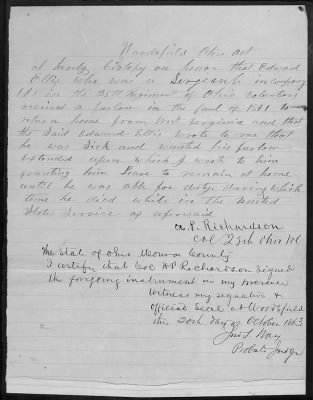 Woodsfield Ohio Oct
I hereby Certify on honor that Edward
Ellis who was a Sergeant in company
in the 25th Regiment of Ohio volenters
received a furlow in the faul of 1861 to
return home from West virginia and that
the Said Edward Ellis wrote to me that
he was Sick and wanted his furlow
extended upon which I wrote to him
granting him Leave to remain at home
until he was able for duty during which
time he died while in the United
States Service as aforesaid
Richardson
Col 25th Ohio Vol
The State of Ohio Monroe County
I certify that Col Richardson signed
the foregoing instrument in my presence
Witness my signature &
official Seal at Woodsfield
the 20th day of October 1863
Probate Judge